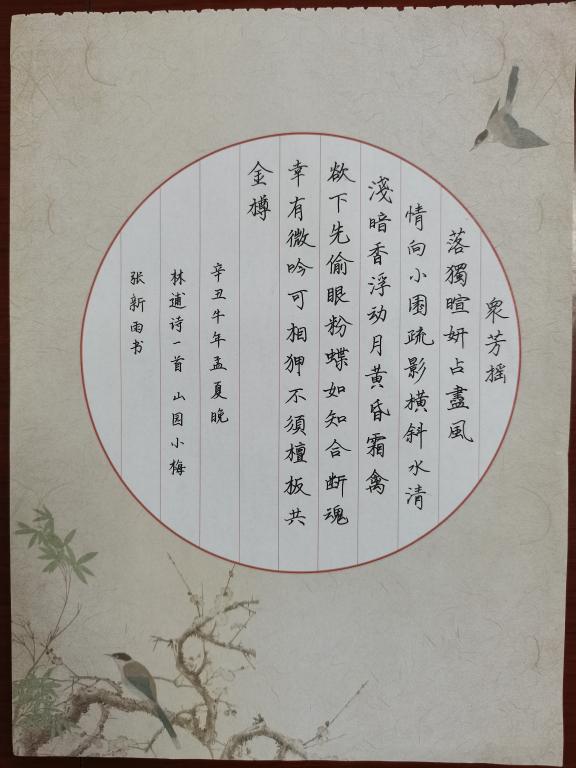 衆芳摇
落獨暄妍占盡風
情向小園疏影横斜水清
淺暗香浮动月黄昏霜禽
欲下先偷眼粉蝶如知合断魂
幸有微吟可相狎不須檀板共
金樽
辛丑牛年孟夏晚
林逋诗一首 山园小梅
张新雨书